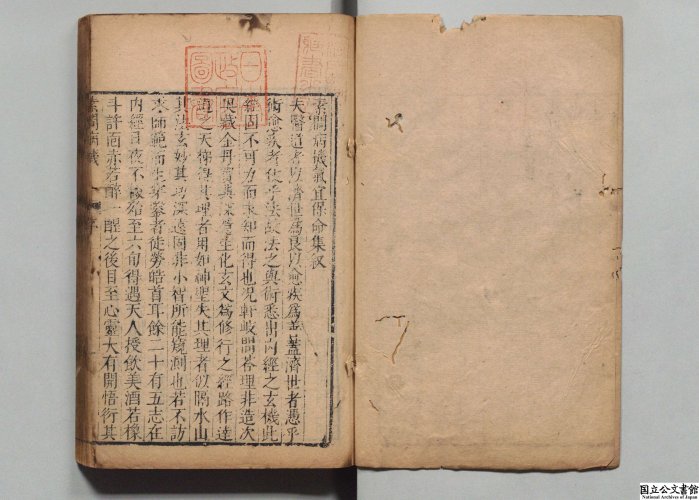 素問病機氣宜保命集叙
夫醫道者以濟世爲良以愈疾爲善蓋濟世者憑乎
術愈疾者仗乎法故法之與術悉出内經之玄機此
經固不可力而求智而得也况軒岐問荅理非造次
奥藏金丹寳典深隱生化玄文爲修行之徑路作達
道之天梯得其理者用如神聖失其理者似隔水山
其法玄妙其功深遠固非小智所能窺測也若不訪
求師範而生穿鑿者徒勞皓首耳餘二十有五志在
内經日夜不輟殆至六旬得遇天人授飲美酒若橡
斗許面赤若醉一醒之後目至心靈大有開悟衍其
素問病機
序
日本政府圖書
国立公文書館
National Archives of Japan